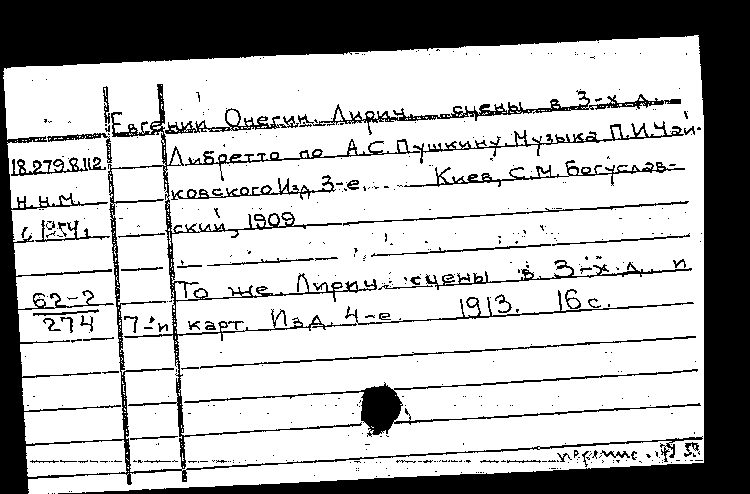 Евгений Онегин. Лирич. сцены в 3-х д.
18.279.8.112 Либретто по А.С.Пушкину. Музыка П.И.Чай-
Н.Н.М. ковского Изд. 3-е. Киев, С.М. Богуслав-
с 1954г. ский, 1909.
62-2 То же. Лирич. сцены в 3-х д. и
274 7-и карт. Изд. 4-е. 1913. 16 с.